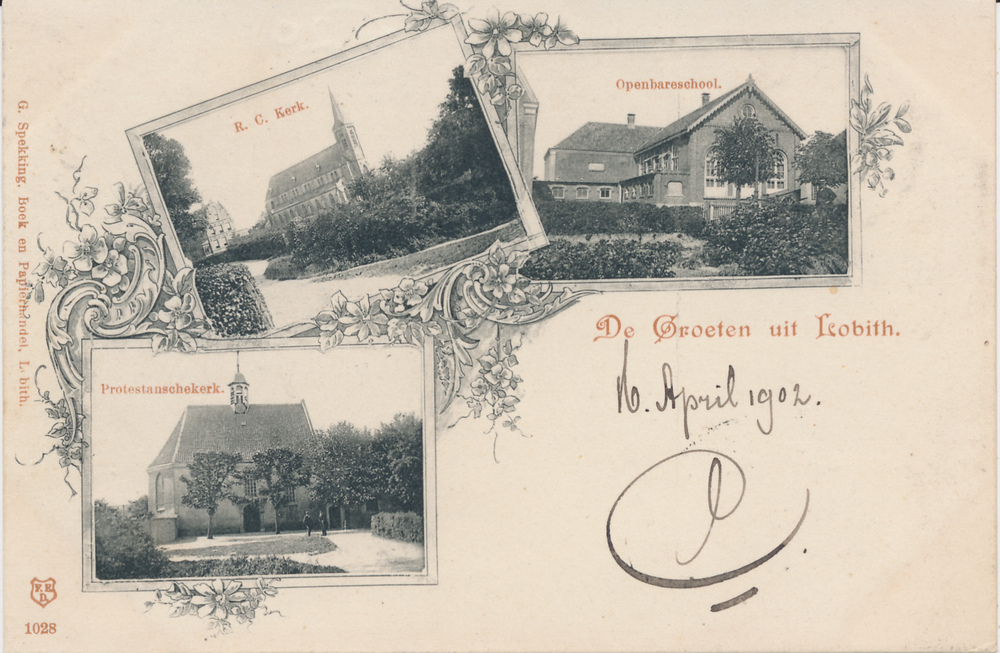 R. C. Kerk.
Openbareschool.
G. Spekking, Boek en Papierhandel, Lobith.
De Groeten uit Lobith.
16. April 1902.
Protestanschekerk.
F. E.
D.
1028